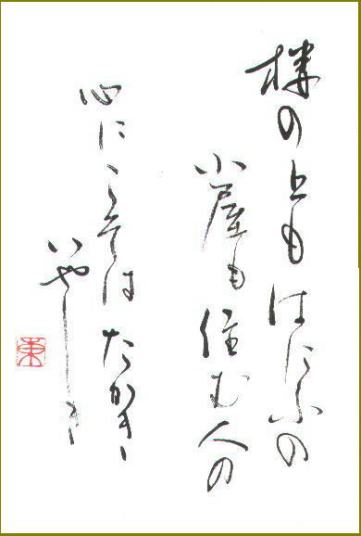 楼の上もはにふの
小屋も住む人の
心にこそはたかき
いやしき
東